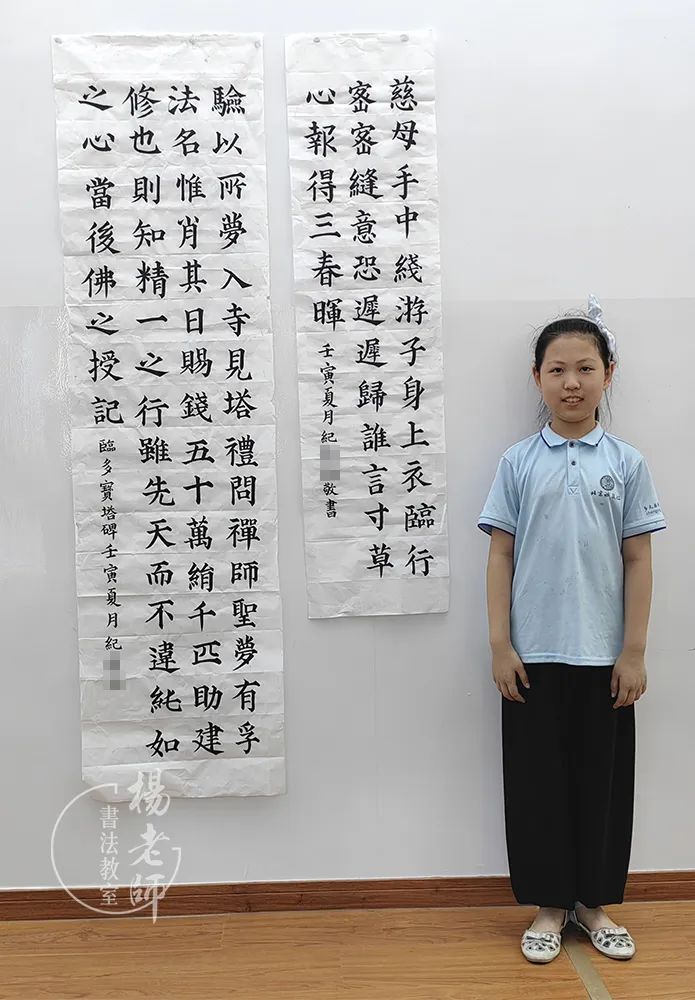 慈母手中綫游子身上衣臨行
密密縫意恐遲遲歸誰言寸草
心報得三春暉
壬寅夏月紀 敬書
驗以所夢入寺見塔禮問禪師聖夢有孚
法名惟肖其日賜錢五十萬絹千匹助建
修也則知精一之行雖先天而不違純如
之心當後佛之授記
臨多寶塔碑壬寅夏月紀
楊老師
書法教室